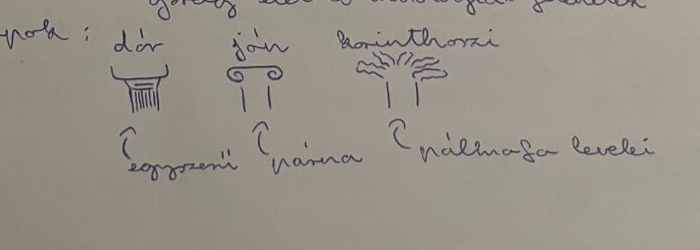 pok : dór jón korinthoszi
egyszerű párna pálmafa levelei